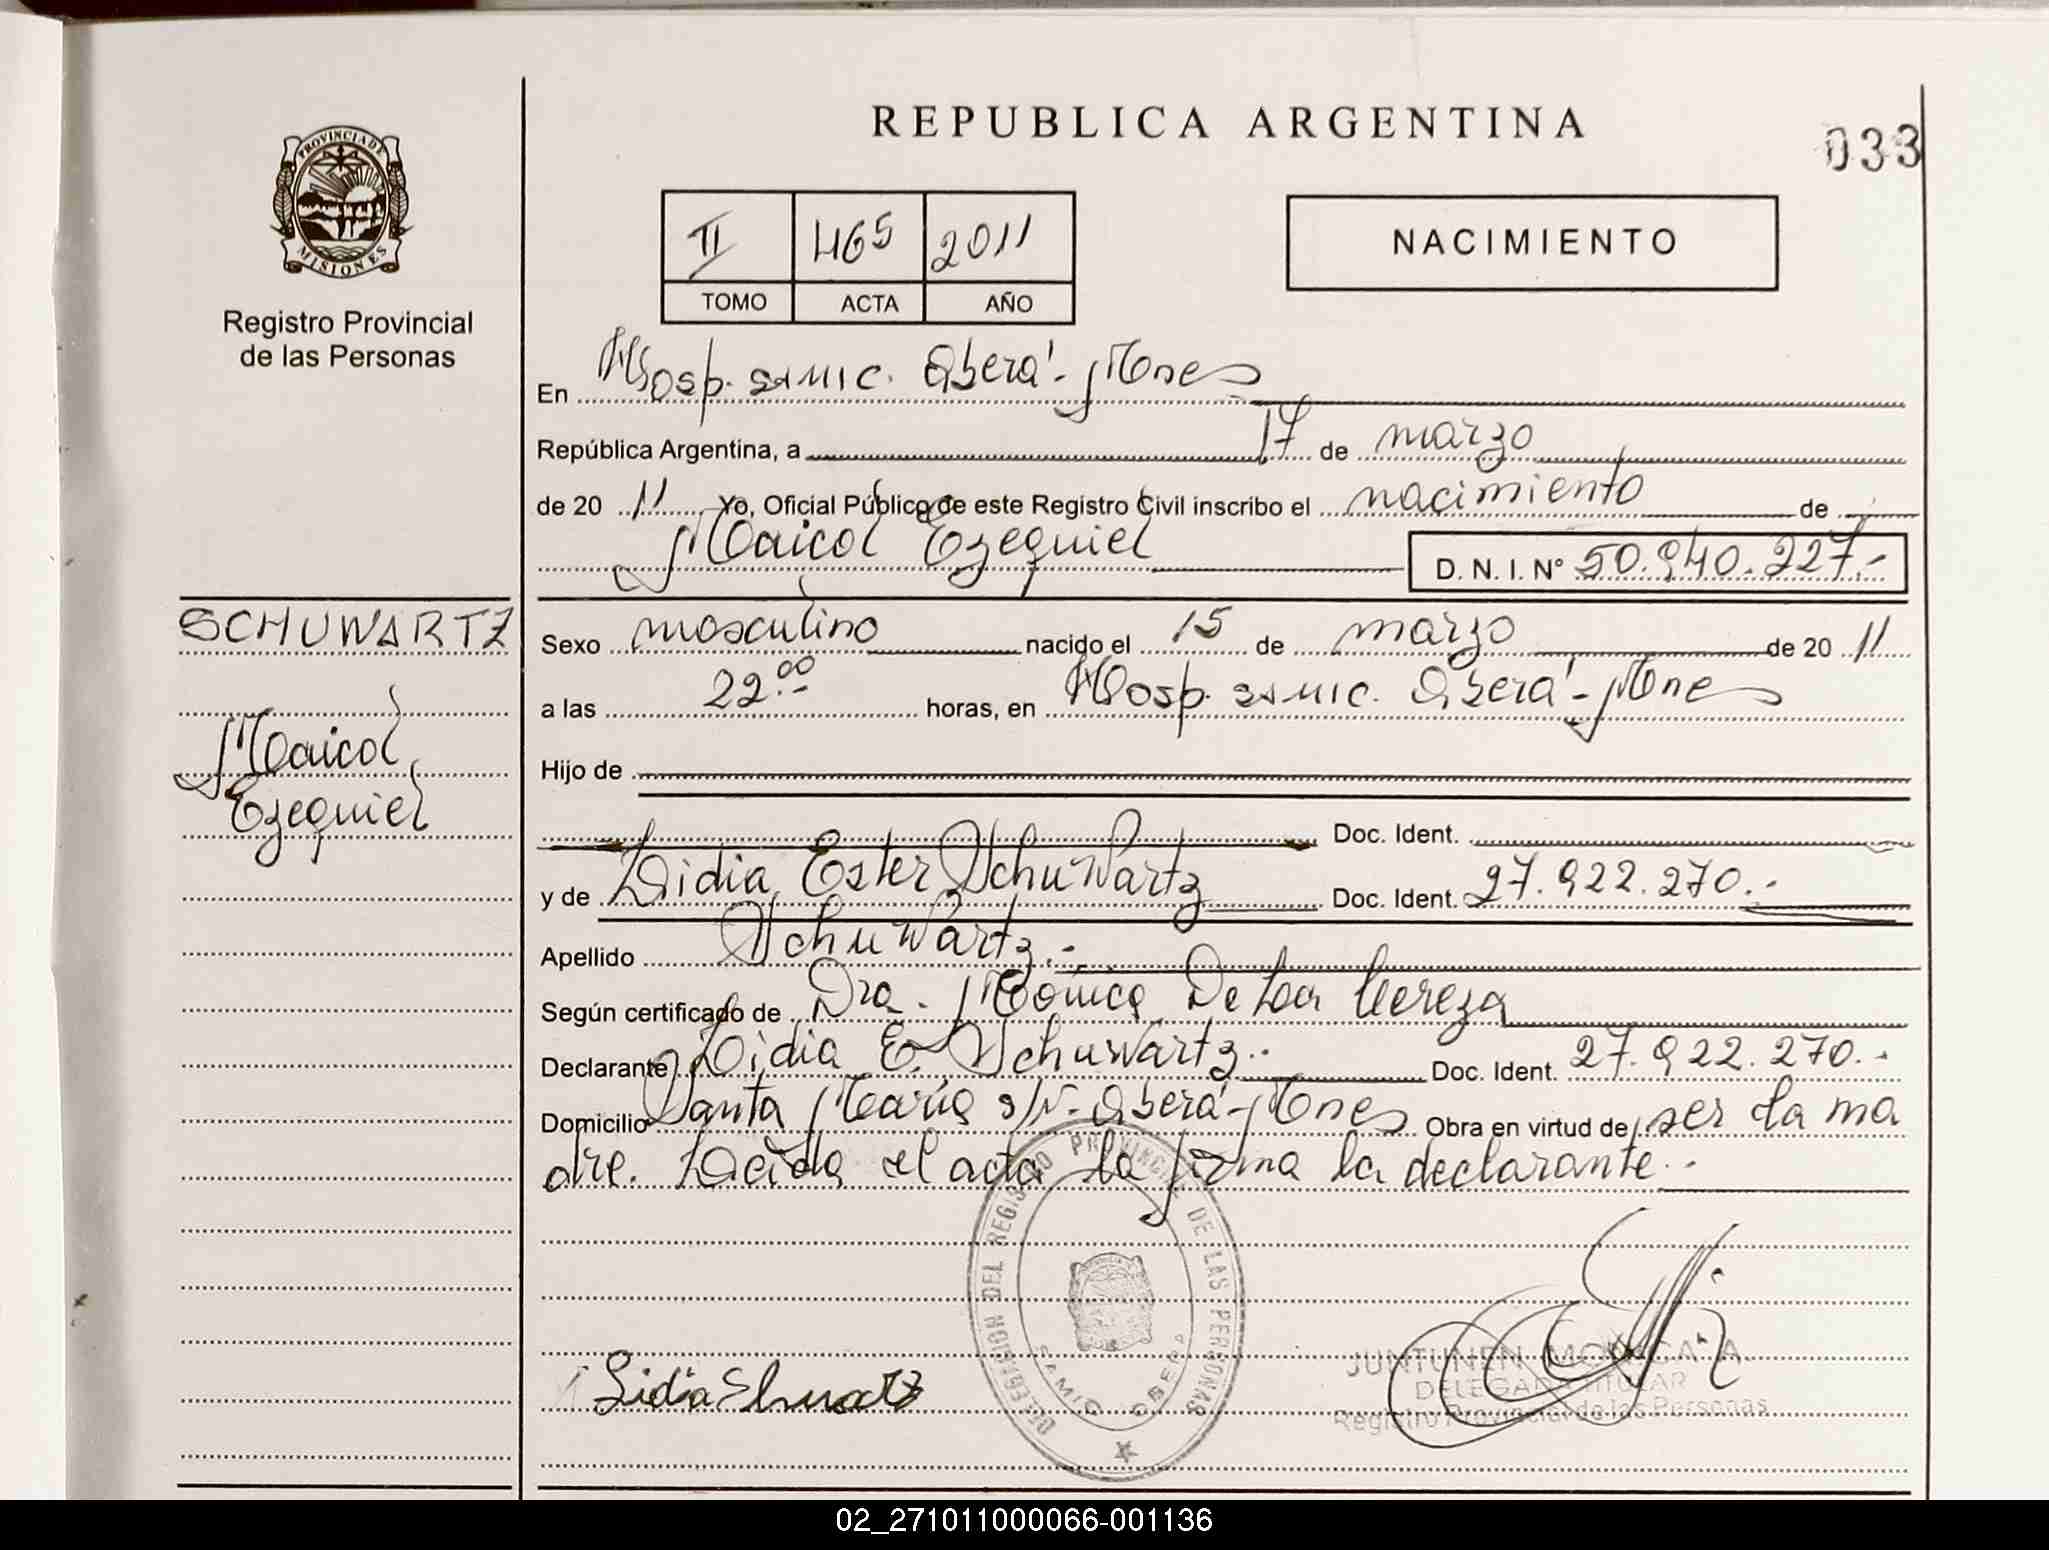 REPUBLICA ARGENTINA
033
PROVINCIA DE
MISIONES
Registro Provincial
de las Personas
II 465 2011
TOMO ACTA AÑO
NACIMIENTO
En Hosp. SAMIC. Oberá - Mnes
República Argentina, a 17 de marzo
de 20 11 Yo, Oficial Público de este Registro Civil inscribo el nacimiento de
Maicol Ezequiel D. N. I. N° 50.940.227.-
SCHUWARTZ
Maicol
Ezequiel
Sexo masculino nacido el 15 de marzo de 20 11
a las 22.00 horas, en Hosp. SAMIC. Oberá - Mnes
Hijo de
Doc. Ident.
y de Lidia Ester Schuwartz Doc. Ident. 27.922.270.-
Apellido Schuwartz.-
Según certificado de Dra. Mónica De La
Declarante Lidia E. Schuwartz.- Doc. Ident. 27.922.270.-
Domicilio Santa María s/N - Oberá - Mnes Obra en virtud de ser la ma
dre. Leída el acta la firma la declarante.-
DELEGACION DEL REGISTRO PROVINCIAL DE LAS PERSONAS
SAMIC OBERA
Lidia Shuartz
JUNTUNEN MONICA A.
DELEGADA TITULAR
Registro Provincial de las Personas
02_271011000066-001136